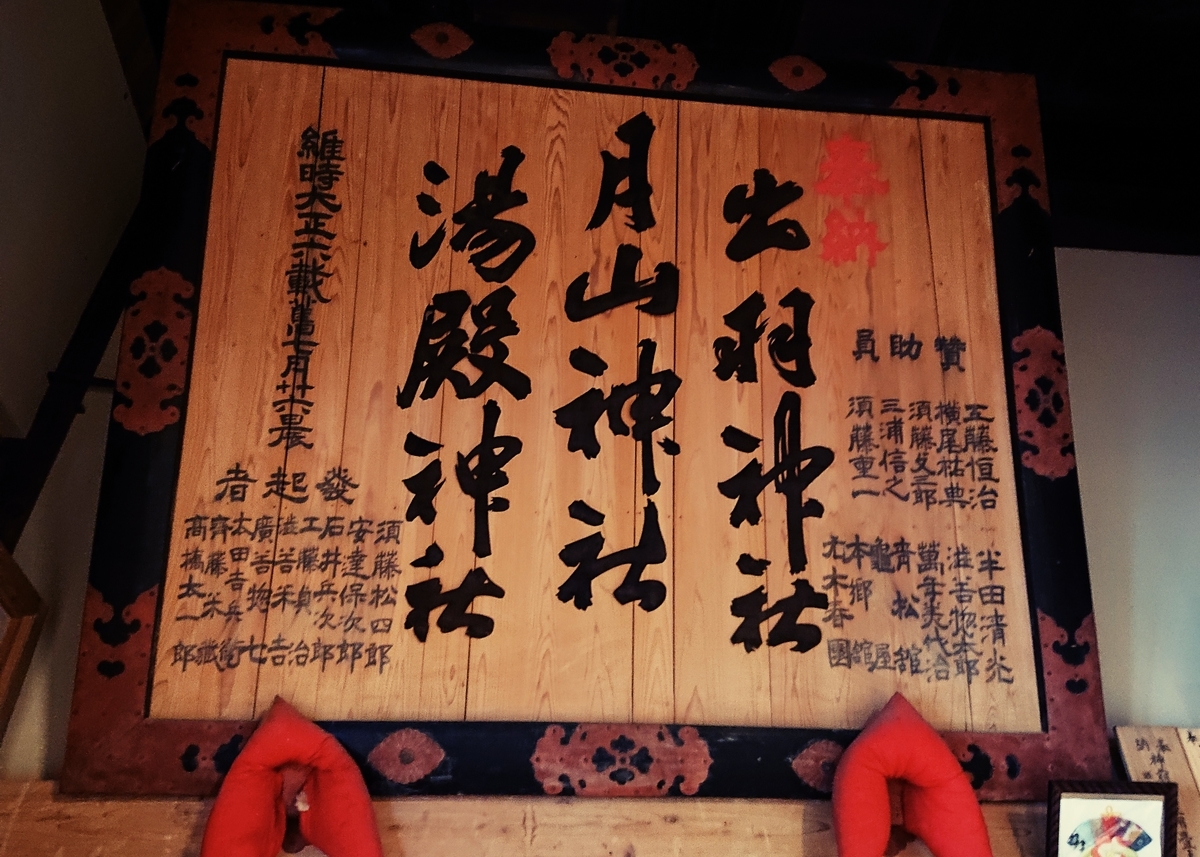 奉納
賛助員
五藤恒治
横尾祐典
須藤文三郎
三浦信之
須藤重一
半田清光
澁谷惣太郎
萬年美代治
青松舘
龜屋
本郷舘
尤木春國
出羽神社
月山神社
湯殿神社
維時大正六載舊七月廿六日晨
發起者
須藤松四郎
安達保次郎
石井兵次郎
工藤貞治
澁谷禾吉
廣谷惣七
本田吉兵衛
齊藤米藏
高橋太一郎